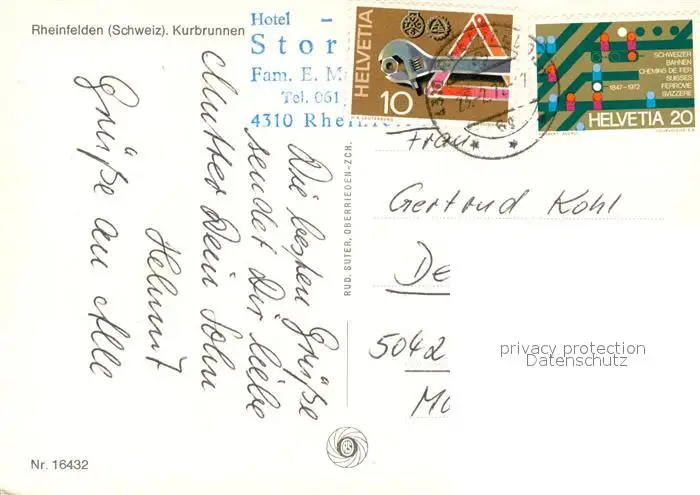 Rheinfelden (Schweiz). Kurbrunnen
Hotel -
Stor
Fam. E. M
Tel. 061
4310 Rheinf
HELVETIA
10
SCHWEIZER
BAHNEN
CHEMINS DE FER
SUISSES
FERROVIE
SVIZZERE
1847-1972
HELVETIA 20
Die besten Grüße
sendet Dir liebe
Mutter Dein Sohn
Helmut
Grüße an Alle
RUD. SUTER, OBERRIEDEN-ZCH.
Frau
Gertrud Kohl
De
5042
Mo
privacy protection
Datenschutz
Nr. 16432